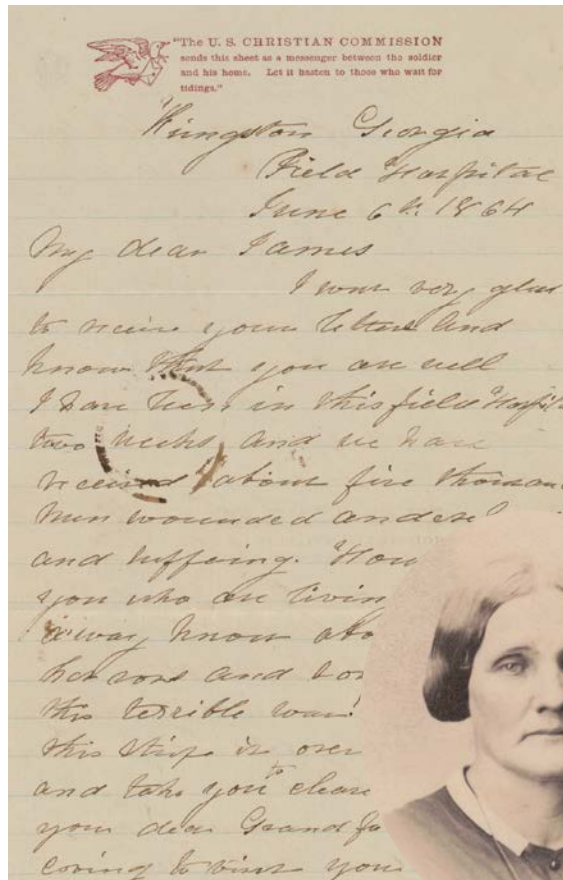 "The U. S. CHRISTIAN COMMISSION
sends this sheet as a messenger between the soldier
and his home. Let it hasten to those who wait for
tidings."
Kingston Georgia
Field Hospital
June 6th 1864
My dear James
I was very glad
to receive your letter and
know that you are well
I have been in this field Hospit
two weeks and we have
received about five thousan
men wounded and
and suffering. How
you who are livin
away know abo
horrors and
this terrible war
this is over
and take you to
your dear Grand fa
to visit you